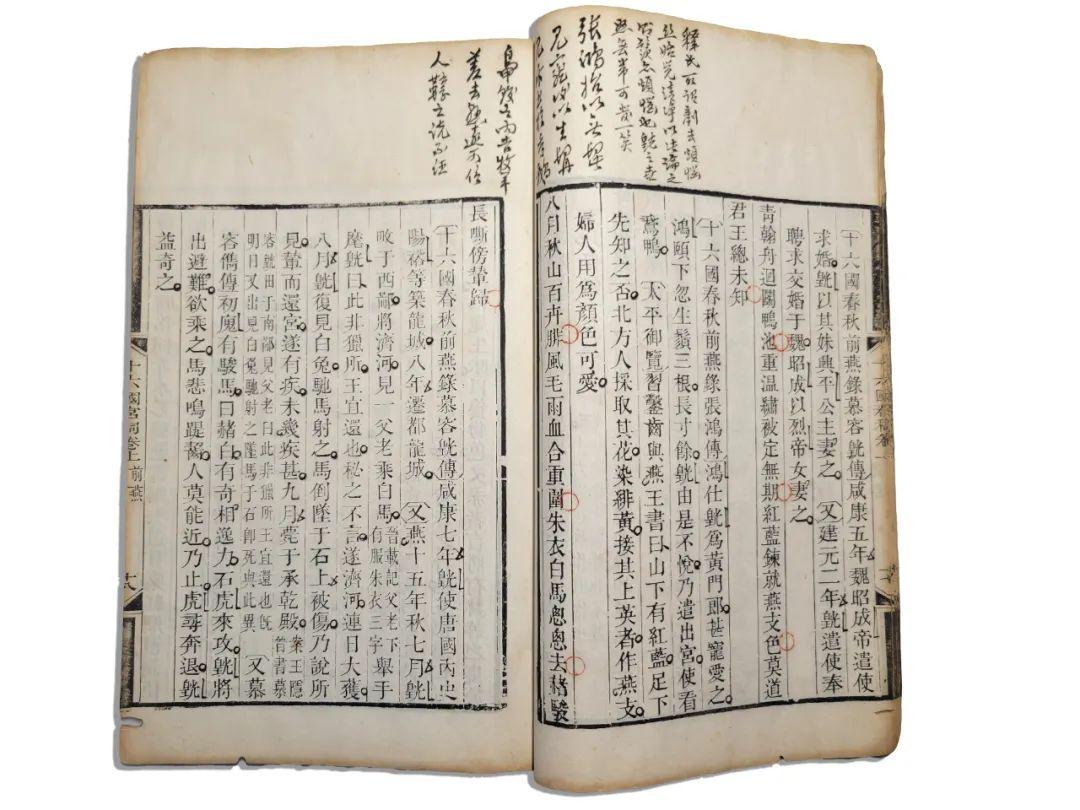 釋氏所謂剃去煩惱
十六國春秋前燕錄慕容皝傳咸康五年魏昭成帝遣使
求婚皝以其妹興平公主妻之 又建元二年皝遣使奉
聘求交婚于魏昭成以烈帝女妻之
青翰舟迴鬬鴨池重温繡被定無期紅藍鍊就燕支色莫道
君王總未知
十六國春秋前燕錄張鴻傳鴻仕皝爲黃門郎甚寵愛之
鴻頤下忽生鬚三根長寸餘皝由是不悅乃遣出宮使看
鵞鴨 太平御覽習鑿齒與燕王書曰山下有紅藍足下
先知之否北方人採取其花染緋黃接其上英者作燕支
婦人用爲顏色可愛
八月秋山百卉腓風毛雨血合重圍朱衣白馬怱怱去赭駿
長嘶傍輦歸
十六國春秋前燕錄慕容皝傳咸康七年皝使唐國內史
陽裕等築龍城八年遷都龍城 又燕十五年秋七月皝
畋于西鄙將濟河見一父老乘白馬晉載記父老下有服朱衣三字舉手
麾皝曰此非獵所王宜還也祕之不言遂濟河連日大獲
八月皝復見白兔馳馬射之馬倒墜于石上被傷乃說所
見輦而還宮遂有疾未幾疾甚九月薨于承乾殿案王隱晉書慕
容皝田于南鄙見父老曰此非獵所王宜還也旣明日又出見白兔馳射之墜馬于石卽死與此異 又慕
容儁傳初魔有駿馬曰赭白有奇相逸力石虎來攻皝將
出避難欲乘之馬悲鳴踶齧人莫能近乃止虎尋奔退皝
益奇之
十六國宮詞卷上 前燕